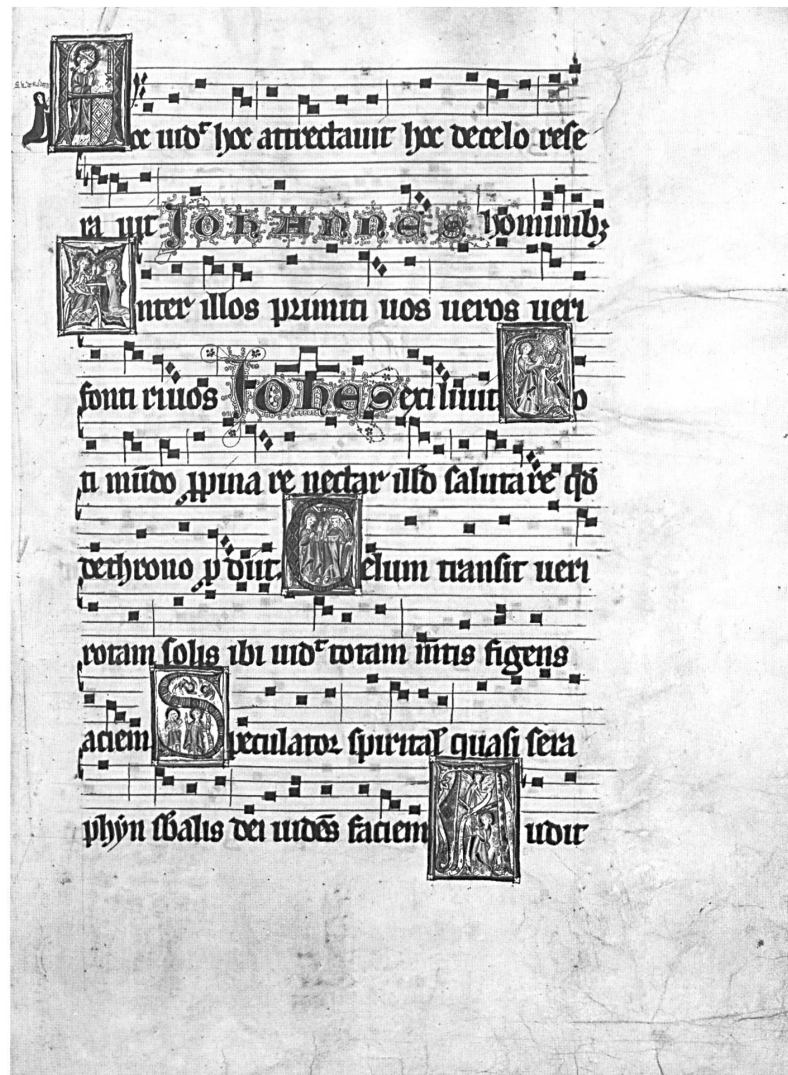 Hoc uidͭ hoc attrectauit hoc decelo rese
ra uit Johannes hominibꝫ
Inter illos primiti uos ueros ueri
fonti riuos Johes exiliuit To
ti mūdo ꝓpina re nectar illd salutare qd
dethrono ꝓ diit. Celum transit ueri
rotam solis ibi uidͭ totam mtis figens
aciem Speculator spirital quasi sera
phyn sb alis dei uidēs faciem Audit